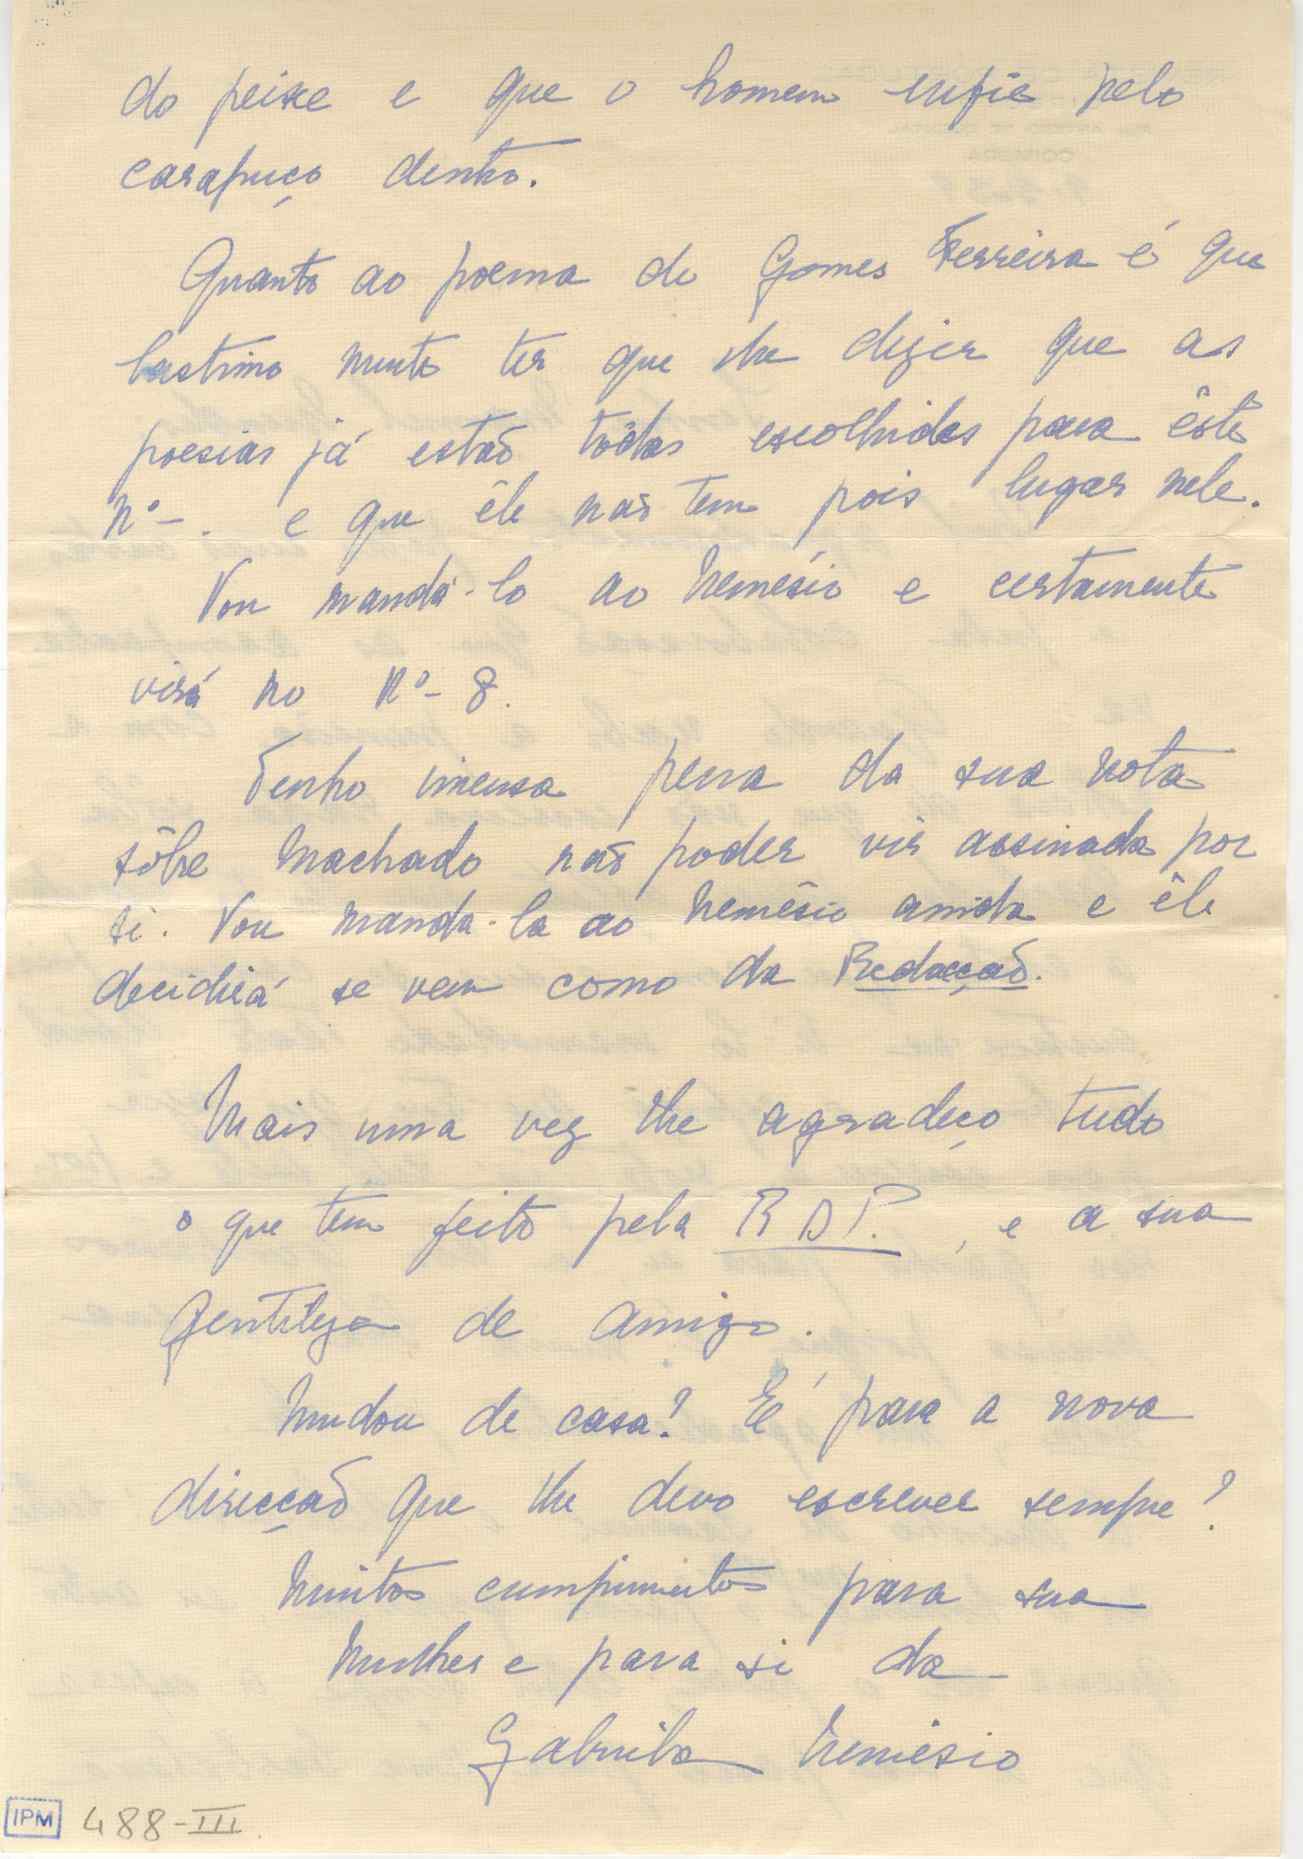 do peixe e que o homem enfie pelo
carapuço dentro.
Quanto ao poema do Gomes Ferreira é que
lastimo muito ter que lhe dizer que as
poesias já estão tôdas escolhidas para êste
nº-. e que êle não tem pois lugar nele.
Vou mandá-lo ao Nemésio e certamente
virá no Nº- 8.
Tenho imensa pena da sua nota
sôbre Machado não poder vir assinada por
si. Vou manda-la ao Nemésio ainda e êle
decidirá se vem como da Redacção.
Mais uma vez lhe agradeço tudo
o que tem feito pela R D P. , e a sua
gentileza de amigo.
Mudou de casa? É para a nova
direcção que lhe devo escrever sempre?
Muitos cumprimentos para sua
Mulher e para si da
Gabriela Nemésio
IPM 488-III